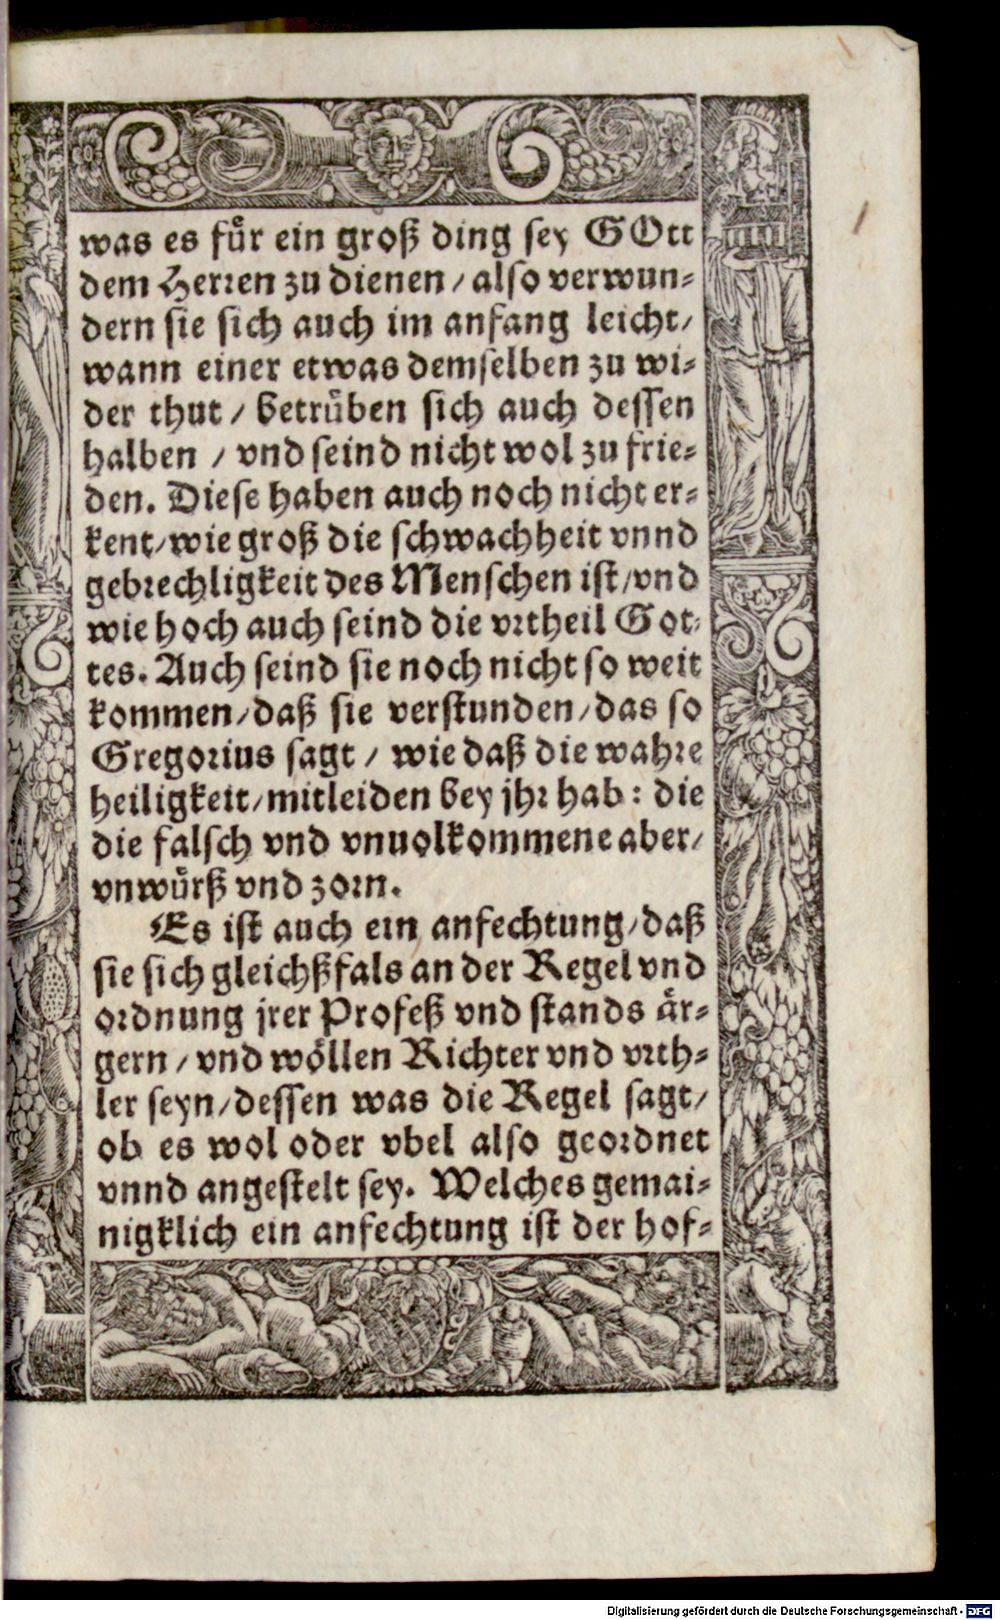 was es fuͤr ein groß ding sey GOtt
dem Herren zu dienen / also verwun⸗
dern sie sich auch im anfang leicht /
wann einer etwas demselben zu wi⸗
der thut / betruͤben sich auch dessen
halben / vnd seind nicht wol zu frie⸗
den. Diese haben auch noch nicht er⸗
kent / wie groß die schwachheit vnnd
gebrechligkeit des Menschen ist / vnd
wie hoch auch seind die vrtheil Got⸗
tes. Auch seind sie noch nicht so weit
kommen / daß sie verstunden / das so
Gregorius sagt / wie daß die wahre
heiligkeit / mitleiden bey jhr hab : die
die falsch vnd vnuolkommene aber /
vnwuͤrß vnd zorn.
Es ist auch ein anfechtung / daß
sie sich gleichßfals an der Regel vnd
ordnung jrer Profeß vnd stands aͤr⸗
gern / vnd woͤllen Richter vnd vrth⸗
ler seyn / dessen was die Regel sagt /
ob es wol oder vbel also geordnet
vnnd angestelt sey. Welches gemai⸗
nigklich ein anfechtung ist der hof⸗
Digitalisierung gefördert durch die Deutsche Forschungsgemeinschaft - DFG